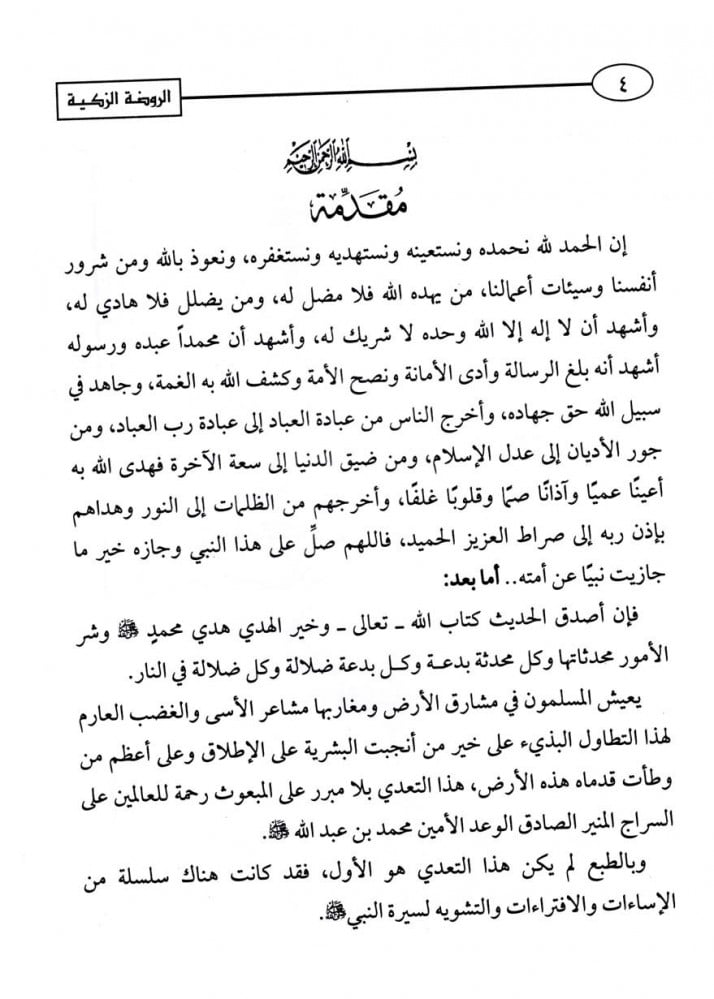 ٤
الروضة الزكية
بسم الله الرحمن الرحيم
مُقَدِّمَة
إن الحمد لله نحمده ونستعينه ونستهديه ونستغفره، ونعوذ بالله ومن شرور
أنفسنا وسيئات أعمالنا، من يهده الله فلا مضل له، ومن يضلل فلا هادي له،
وأشهد أن لا إله إلا الله وحده لا شريك له، وأشهد أن محمداً عبده ورسوله
أشهد أنه بلغ الرسالة وأدى الأمانة ونصح الأمة وكشف الله به الغمة، وجاهد في
سبيل الله حق جهاده، وأخرج الناس من عبادة العباد إلى عبادة رب العباد، ومن
جور الأديان إلى عدل الإسلام، ومن ضيق الدنيا إلى سعة الآخرة فهدى الله به
أعينًا عميًا وآذانًا صمًا وقلوبًا غلفًا، وأخرجهم من الظلمات إلى النور وهداهم
بإذن ربه إلى صراط العزيز الحميد، فاللهم صلِّ على هذا النبي وجازه خير ما
جازيت نبيًا عن أمته.. أما بعد:
فإن أصدق الحديث كتاب الله ـ تعالى ـ وخير الهدي هدي محمدٍ ﷺ وشر
الأمور محدثاتها وكل محدثة بدعـة وكـل بدعة ضلالة وكل ضلالة في النار.
يعيش المسلمون في مشارق الأرض ومغاربها مشاعر الأسى والغضب العارم
لهذا التطاول البذيء على خير من أنجبت البشرية على الإطلاق وعلى أعظم من
وطأت قدماه هذه الأرض، هذا التعدي بلا مبرر على المبعوث رحمة للعالمين على
السراج المنير الصادق الوعد الأمين محمد بن عبد الله ﷺ.
وبالطبع لم يكن هذا التعدي هو الأول، فقد كانت هناك سلسلة من
الإساءات والافتراءات والتشويه لسيرة النبي ﷺ.